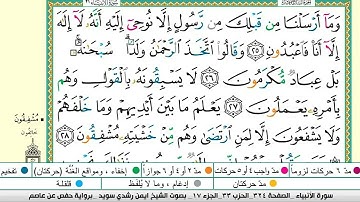 وَمَآ أَرْسَلْنَا مِن قَبْلِكَ مِن رَّسُولٍ إِلَّا نُوحِىٓ إِلَيْهِ أَنَّهُۥ لَآ إِلَٰهَ
إِلَّآ أَنَا۠ فَٱعْبُدُونِ ٢٥ وَقَالُوا۟ ٱتَّخَذَ ٱلرَّحْمَٰنُ وَلَدًا ۗ سُبْحَٰنَهُۥ ۚ
بَلْ عِبَادٌ مُّكْرَمُونَ ٢٦ لَا يَسْبِقُونَهُۥ بِٱلْقَوْلِ وَهُم
بِأَمْرِهِۦ يَعْمَلُونَ ٢٧ يَعْلَمُ مَا بَيْنَ أَيْدِيهِمْ وَمَا خَلْفَهُمْ
وَلَا يَشْفَعُونَ إِلَّا لِمَنِ ٱرْتَضَىٰ وَهُم مِّنْ خَشْيَتِهِۦ مُشْفِقُونَ ٢٨
مُشْفِقُونَ
خائفون
مدّ ٦ حركات لزوماً مدّ ٢ أو ٤ أو ٦ جوازاً إخفاء، ومواقع الغُنَّة (حركتان) تفخيم
مدّ واجب ٤ أو ٥ حركات مدّ حركتان إدغام، وما لا يُلفَظ قلقلة
سورة الأنبياء. الصفحة ٣٢٤. الحزب ٣٣. الجزء ١٧. بصوت الشيخ أيمن رشدي سويد. برواية حفص عن عاصم